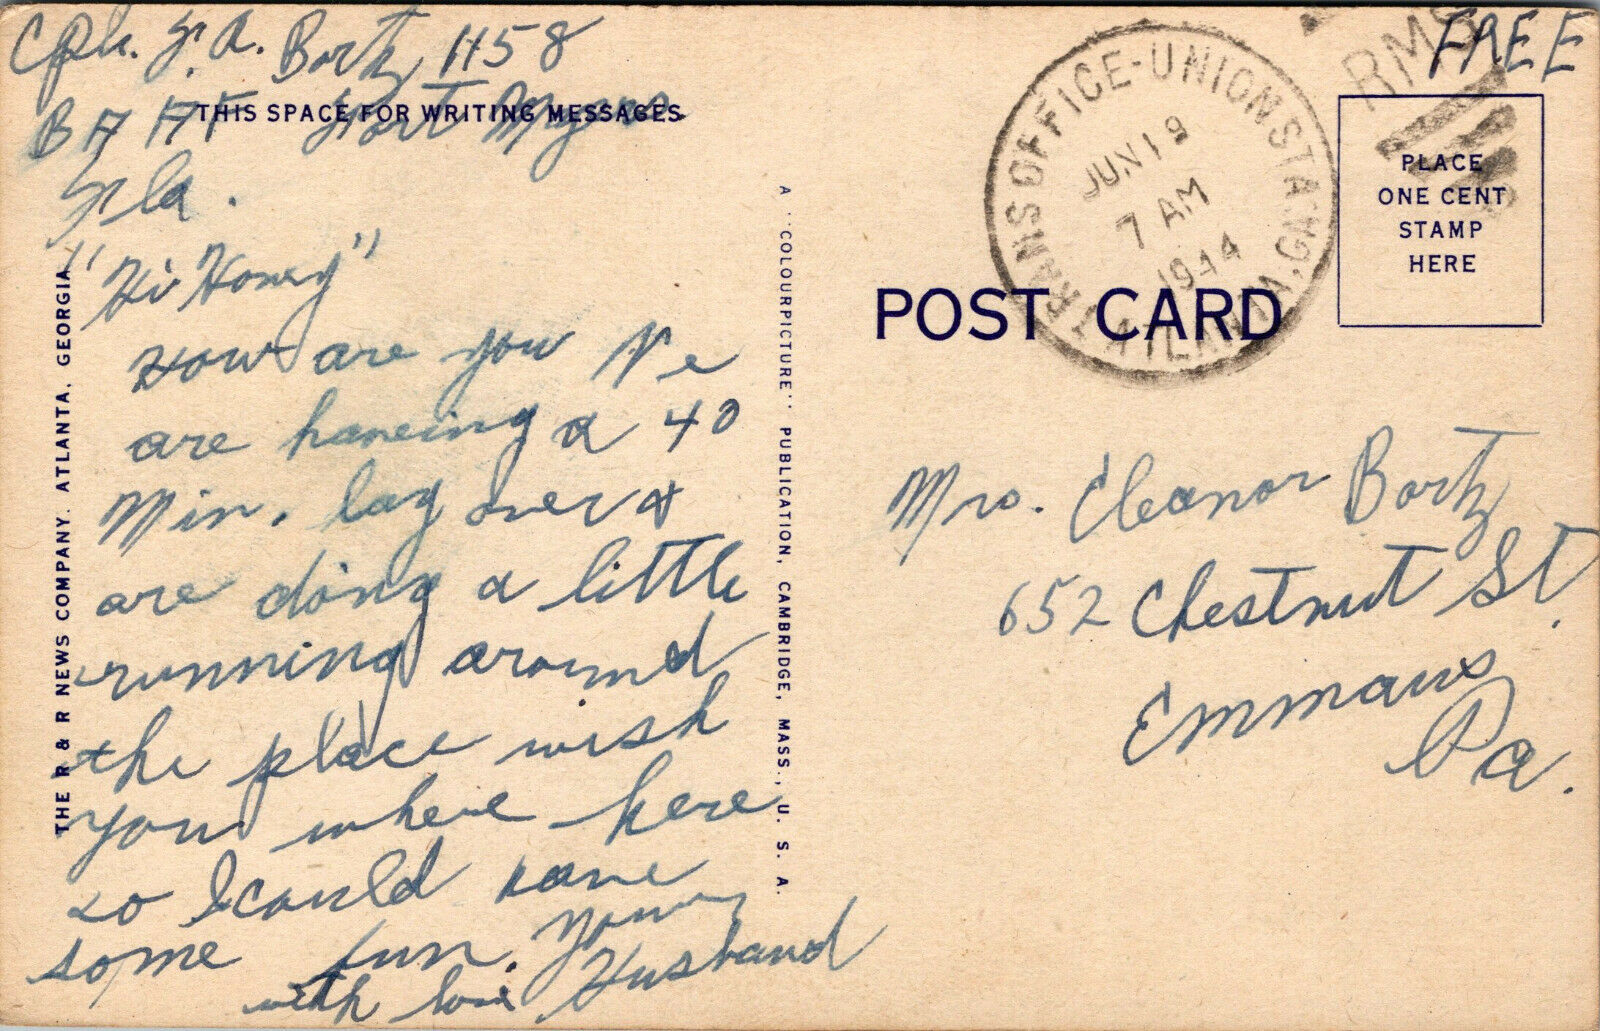 Cpl. F. A. Bortz 1158
BAAF Fort Myers
Fla.
THIS SPACE FOR WRITING MESSAGES
"Hi Honey"
How are you We
are haveing a 40
Min. lay over &
are doing a little
running around
the place wish
you where here
so I could have
some fun. Your
with love Husband
THE R & R NEWS COMPANY. ATLANTA. GEORGIA
A "COLOURPICTURE" PUBLICATION, CAMBRIDGE, MASS., U. S. A.
TRANS OFFICE-UNION STA.
ATLANTA, GA.
JUN 19
7 AM
1944
RMS
FREE
PLACE
ONE CENT
STAMP
HERE
POST CARD
Mrs. Eleanor Bortz
652 Chestnut St.
Emmaus
Pa.